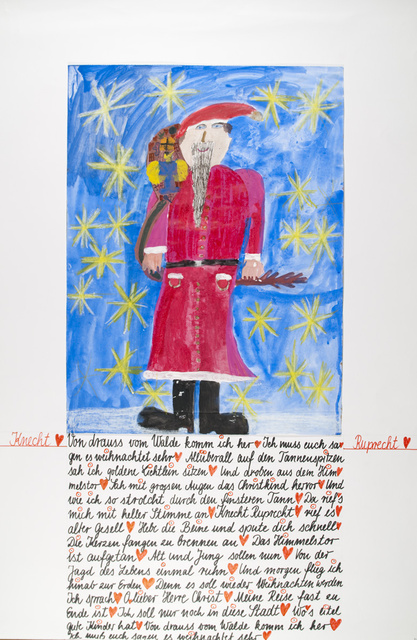 Knecht ♥ Von drauss vom Walde komm ich her ♥ Ich muss euch sa- Ruprecht ♥
gen es weihnachtet sehr ♥ Allüberall auf den Tannenspitzen
sah ich goldene Lichtlein sitzen ♥ Und droben aus dem Him♥
melstor ♥ Sah mit grossen Augen das Christkind hervor ♥ Und
wie ich so strolcht durch den finsteren Tann ♥ Da rief's
mich mit heller Stimme an ♥ Knecht Ruprecht ♥ rief es ♥
alter Gsell ♥ Hebe die Beine und spute dich schnell ♥
Die Kerzen fangen zu brennen an ♥ Das Himmelstor
ist aufgetan ♥ Alt und Jung sollen nun ♥ Von der
Jagd des Lebens einmal ruhn ♥ Und morgen flieg ich
hinab zur Erden ♥ Denn es soll wieder Weihnachten werden
Ich sprach ♥ O lieber Herre Christ ♥ Meine Reise fast zu
Ende ist ♥ Ich soll nur noch in diese Stadt ♥ Wo's eitel
gute Kinder hat ♥ Von drauss vom Walde komm ich her ♥
Ich muss euch sagen es weihnachtet sehr ♥